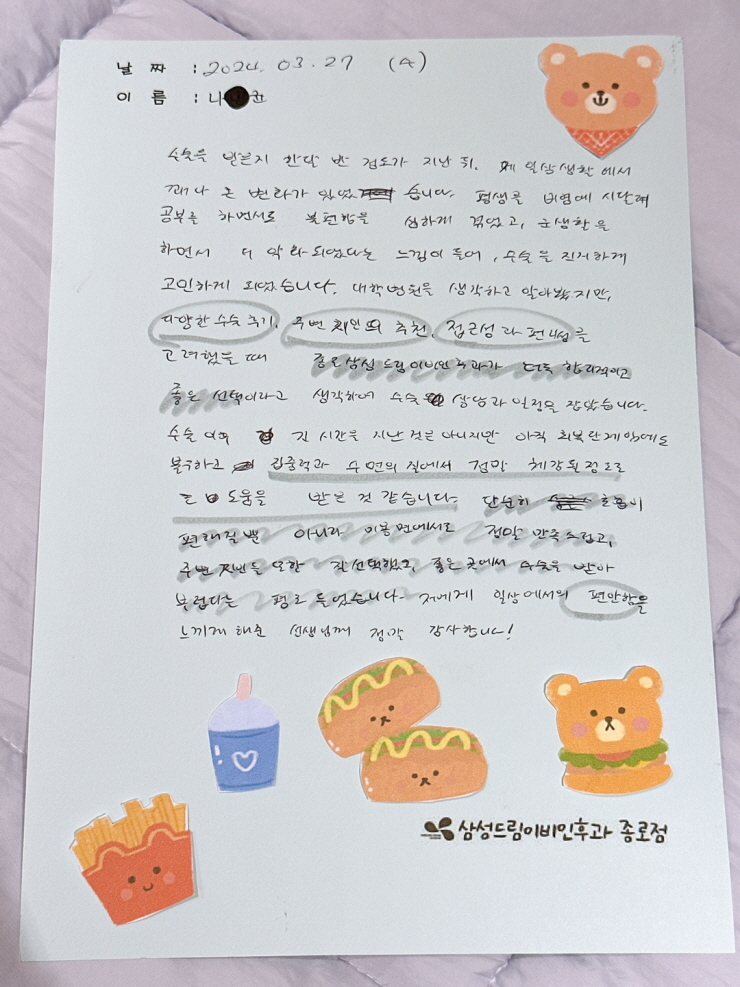 날 짜 : 2024. 03. 27 (수)
이 름 : 나 윤
수술을 받은지 한달 반 정도가 지난 뒤, 제 일상생활에서
꽤나 큰 변화가 있었습니다. 평생을 비염에 시달려
공부를 하면서도 불편함을 심하게 겪었고, 군생활을
하면서 더 악화되었다는 느낌이 들어, 수술을 진지하게
고민하게 되었습니다. 대학병원을 생각하고 알아봤지만,
다양한 수술 후기, 주변 지인의 추천, 접근성과 편의성을
고려했을 때 종로삼성드림이비인후과가 더욱 합리적이고
좋은 선택이라고 생각하여 수술 상담과 일정을 잡았습니다.
수술 이후 긴 시간을 지난 것은 아니지만 아직 회복단계임에도
불구하고 집중력과 수면의 질에서 정말 체감될정도로
큰 도움을 받은 것 같습니다. 단순히 호흡이
편해질뿐 아니라 미용면에서도 정말 만족스럽고,
주변 지인들 또한 잘 선택했고, 좋은 곳에서 수술을 받아
부럽다는 평도 들었습니다. 저에게 일상에서의 편안함을
느끼게 해준 선생님께 정말 감사합니다!
삼성드림이비인후과 종로점